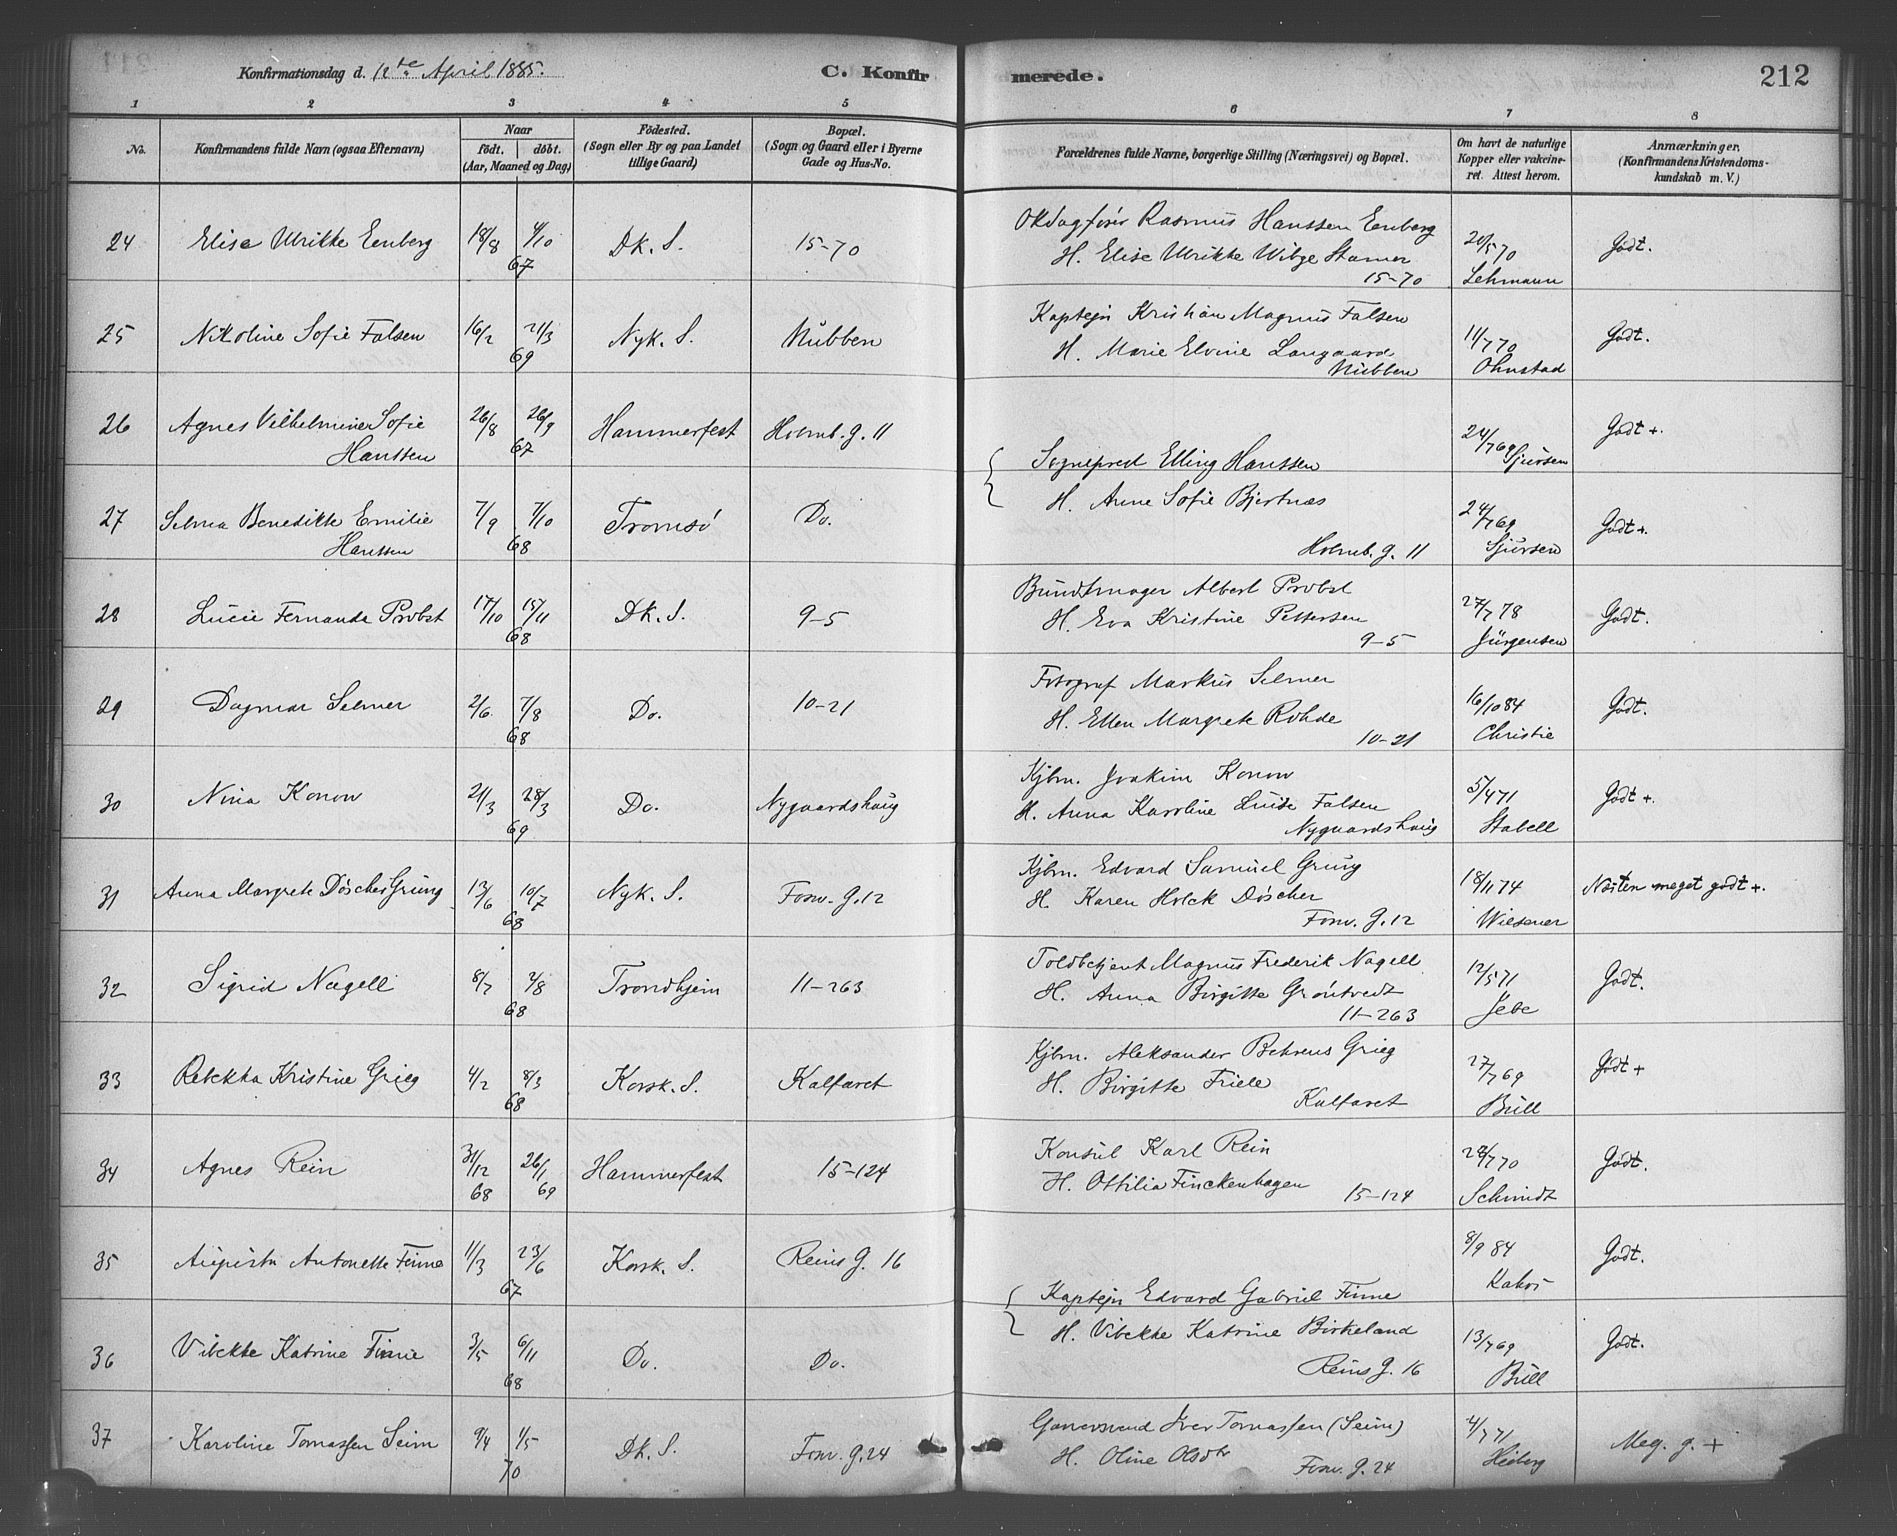 Konfirmationsdag d. 12te April 1885. C. Konfirmerede. 212
1 2 3 4 5 6 7 8
No. Konfirmandens fulde Navn (ogsaa Efternavn) Naar födt. döbt. (Aar, Maaned og Dag) Födested. (Sogn eller By og paa Landet tillige Gaard) Bopæl. (Sogn og Gaard eller i Byerne Gade og Hus-No. Forældrenes fulde Navne, borgerlige Stilling (Næringsvei) og Bopæl. Om havt de naturlige Kopper eller vakcineret. Attest herom. Anmærkninger. (Konfirmandens Kristendomskundskab m. V.)
24 Elise Ulrikke Eenberg 18/8 4/10 67 Dk. S. 15-70 Rasmus Hanssen Eenberg
H. Elise Ulrikke Wibye Stamer 15-70 20/5 70 Lehmann Godt.
25 Nikoline Sofie Falsen 16/2 21/3 69 Nyk. S. Nubben Kaptejn Kristian Magnus Falsen
H. Marie Elvine Langaard Nubben 11/7 70 Ohnstad Godt.
26 Agnes Vilhelmine Sofie Hanssen 26/8 26/9 67 Hammerfest Holmb. g. 11 Sognepræst Elling Hanssen 24/7 69 Sjursen Godt +.
27 Selma Benedikte Emilie Hanssen 7/9 7/10 68 Tromsö Do. H. Anne Sofie Bjertnæs
Holmb. g. 11 24/7 69 Sjursen Godt +.
28 Lucie Fernanda Probst 17/10 15/11 68 Dk. S. 9-5 Bundtmager Albert Probst
H. Eva Kristine Pettersen 9-5 27/7 78 Jürgensen Godt.
29 Dagmar Selmer 2/6 7/8 68 Do. 10-21 Fotograf Markus Selmer
H. Ellen Margrete Rohde 10-21 16/10 84 Christie Godt.
30 Nina Konow 21/3 28/3 69 Do. Nygaardshaug Kjbm. Joakim Konow
H. Anna Karoline Luise Falsen Nygaardshaug 5/4 71 Stabell Godt +.
31 Anna Margrete Döscher Grung 13/6 10/7 68 Nyk. S. Fosw. g. 12 Kjbm. Edvard Samuel Grung
H. Karen Holck Döscher Fosw. g. 12 18/11 74 Wiesener Næsten meget godt +.
32 Sigrid Nagell 8/7 2/8 68 Trondhjem 11-263 Toldbetjent Magnus Frederik Nagell
H. Anna Birgitte Gröntvedt 11-263 12/5 71 Jebe Godt.
33 Rebekka Kristine Grieg 4/2 8/3 68 Korsk. S. Kalfaret Kjbm. Aleksander Behrens Grieg
H. Birgitte Friele Kalfaret 27/7 69 Bull Godt +
34 Agnes Rein 31/12 68 26/1 69 Hammerfest 15-124 Konsul Karl Rein
H. Ottilia Finckenhagen 15-124 28/7 70 Schmidt Godt.
35 Augusta Antonette Finne 11/3 23/6 67 Korsk. S. Reins g. 16 Kaptejn Edvard Gabriel Finne 8/9 84 Godt.
36 Vibekke Katrine Finne 3/5 6/11 68 Do. Do. H. Vibekke Katrine Birkeland
Reins g. 16 13/7 69 Bull Godt.
37 Karoline Tomassen Seim 9/4 1/5 70 Dk. S. Fosw. g. 24 Garversvend Iver Tomassen (Seim)
H. Oline Olsdtr Fosw. g. 24 4/7 71 Heiberg Meg. g. +